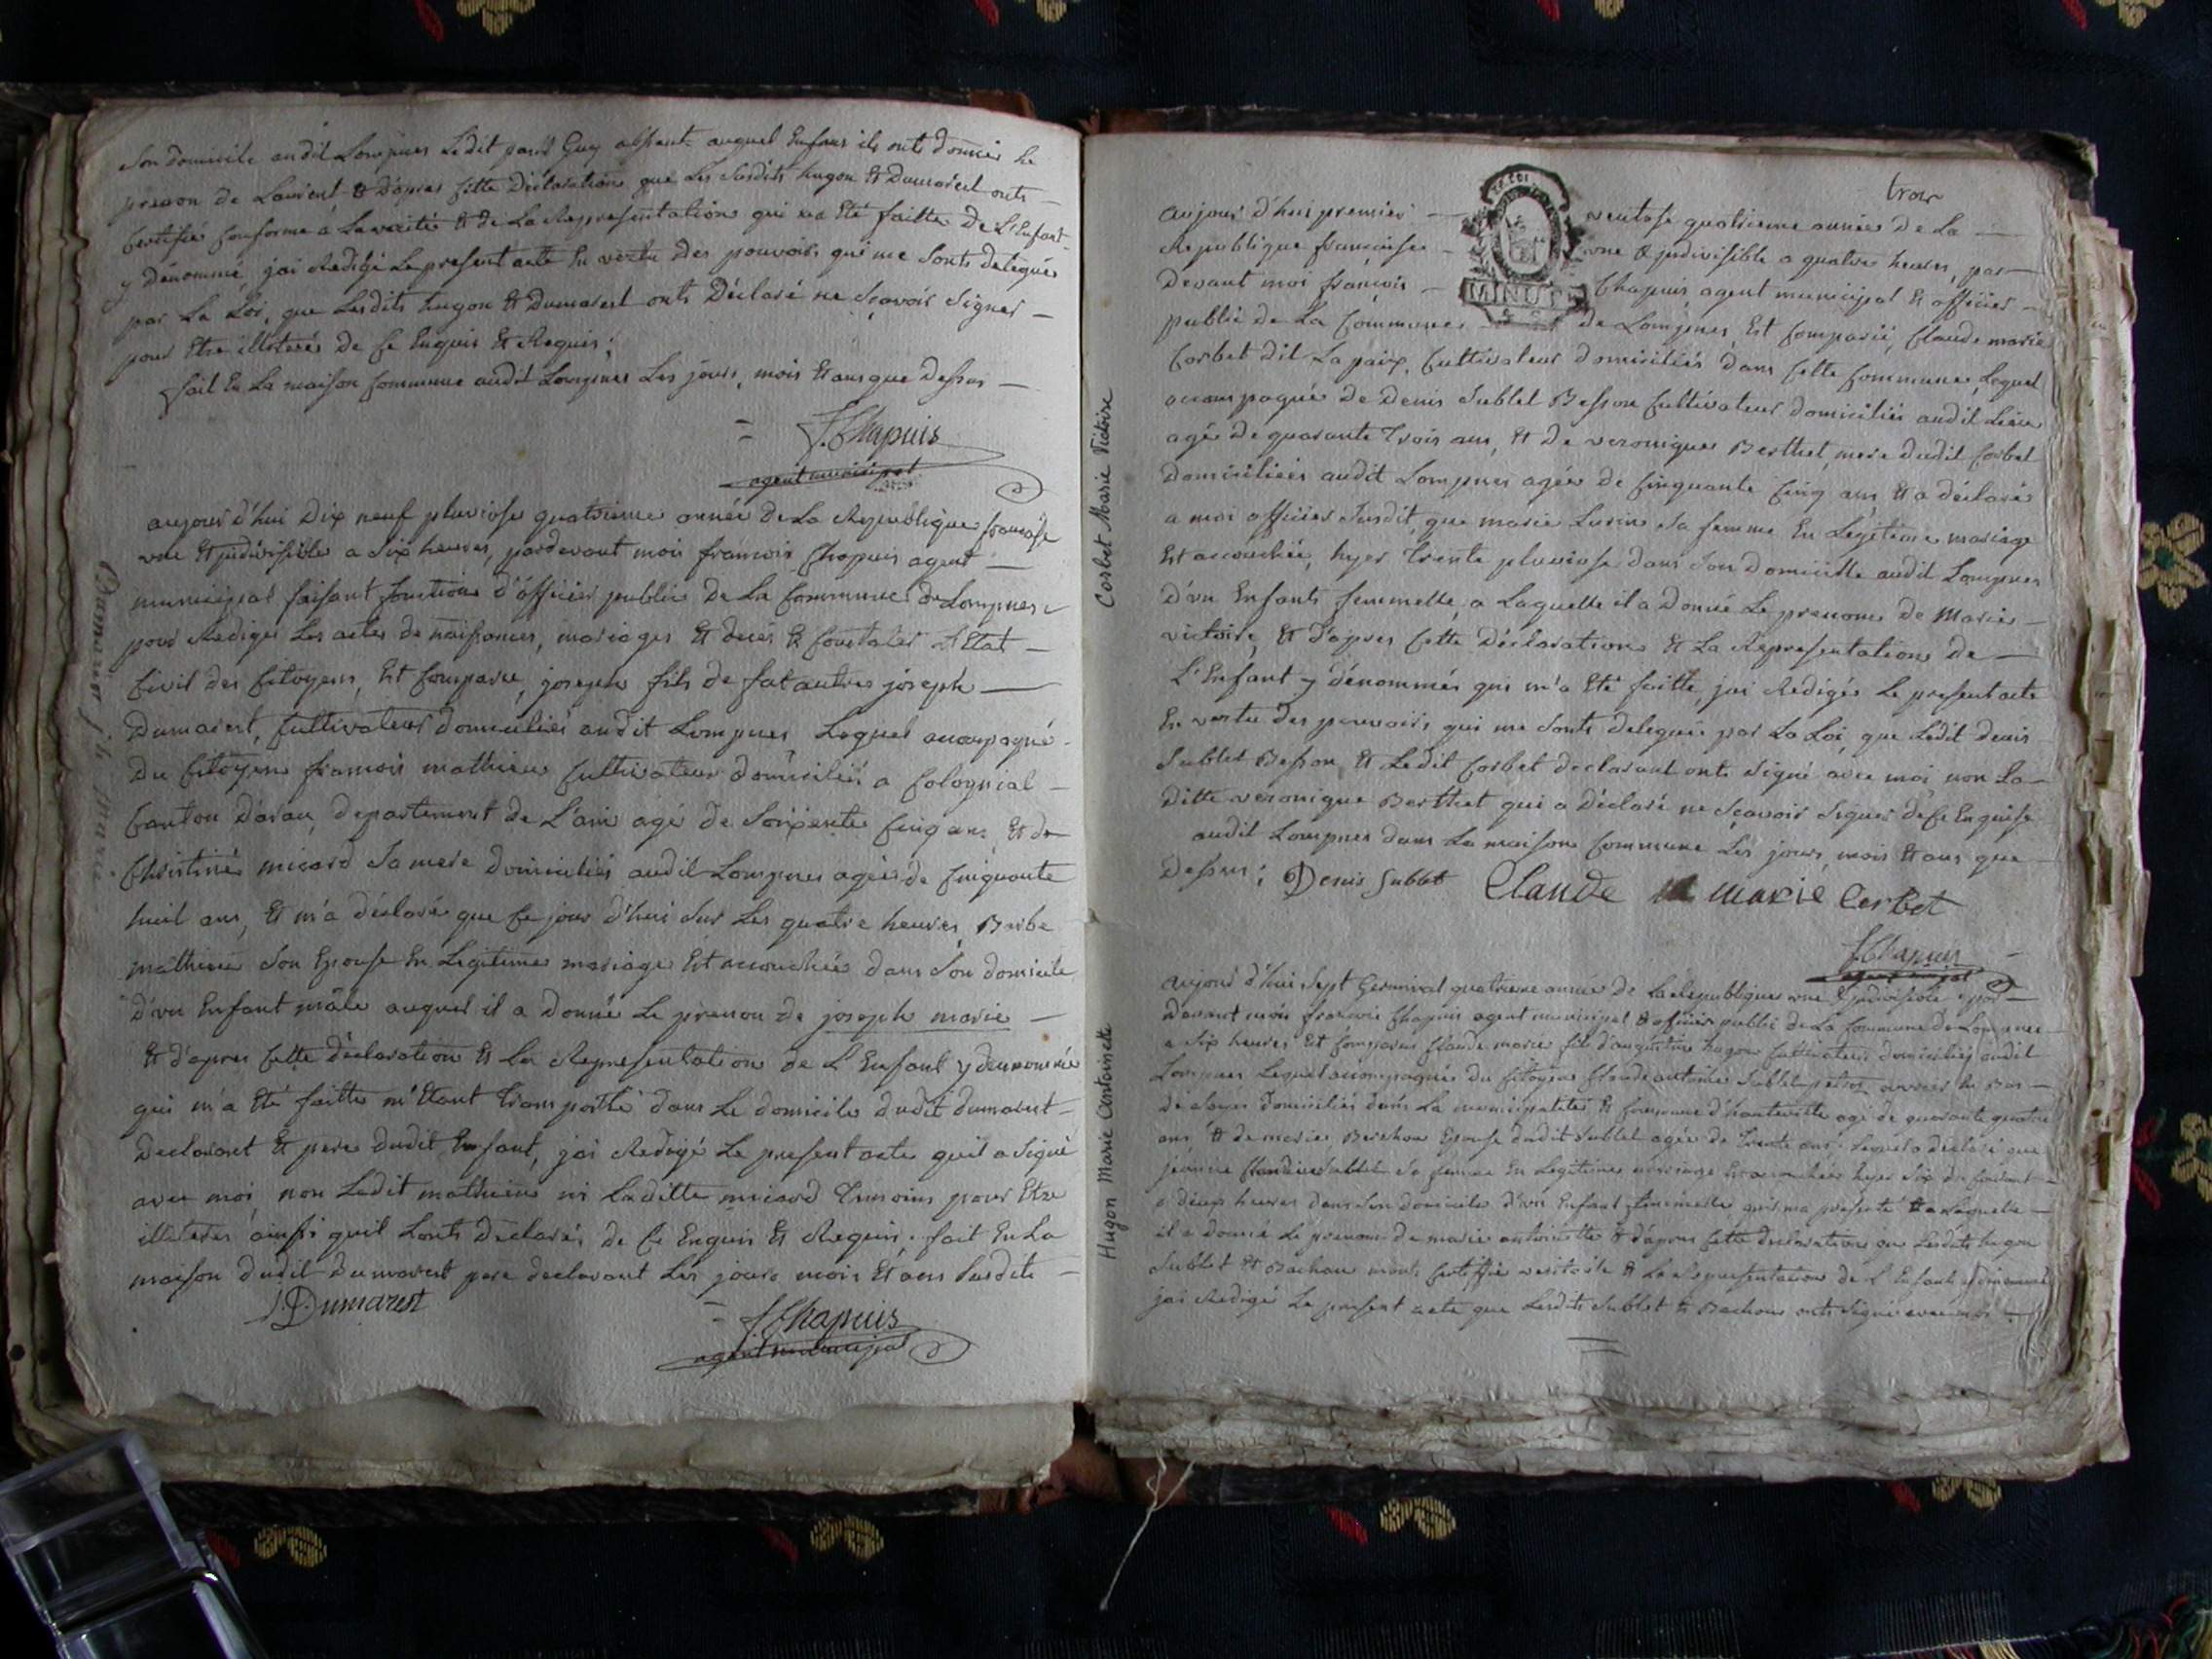 Son domicile audit Lompnes Ledit Guy absent auquel Enfant ils ont donné Le
prenon de Laurent & d'apres cette Déclaration que Les susdits hugon Et Dumarest onts
Certifié conforme à La vérité Et de La Representation qui m'a Eté faitte De L'Enfant
y dénommé, jai Redigé Le present acte En vertu des pouvoirs qui me sonts delegués
par La Loi, que Lesdits hugon Et Dumarest onts Déclaré ne sçavoir signer
pour Etre illiteré de ce Enquis Et Requis;
fait En La maison commune audit Lompnes Les jours, mois Et ans que dessus
F. Chapuis
agent municipal
Dumarest j.h marie
aujour d'hui Dix neuf pluviose quatrieme année de La Republique francaise
une Et indivisible a six heures, pardevant moi francois Chapuis agent
municipal faisant fonctions d'officier public de La Commune de Lompnes
pour Rediger Les actes de naissances, mariages Et decès Et constater L'Etat
Civil des Citoyens, Est comparu, joseph fils de fut autre joseph
Dumarest, cultivateur domicilié audit Lompnes Lequel accompagné
du Citoyen francois mathieu cultivateur domicilié a
Canton departement de L'ain agé de soixante cinq ans, Et de
Christine micard sa mere domiciliée audit Lompnes agée de cinquante
huit ans, Et m'a déclaré que ce jour d'hui sur Les quatre heures, Barbe
mathieu son Epouse En Legitime mariage Est accouchée dans son domicile
d'un Enfant mâle auquel il a donné Le prenon de joseph marie
Et d'apres cette déclaration Et La Representation de L'Enfant y denommé
qui m'a Eté faitte m'Etant Transporté dans Le domicile dudit dumarest
declarant Et pere dudit Enfant, jai Redigé Le present acte quil a signé
avec moi, non Ledit mathieu ni Laditte micard Temoins pour Etre
illiterés ainsi quil Lonts déclarés de ce Enquis Et Requis; fait En La
maison dudit Dumarest pere declarant Les jours mois Et ans susdits
J. Dumarest
F. Chapuis
agent municipal
trois
MINUTE
Corbet Marie Victoire
aujour d'hui premier ventose quatrieme année de La
Republique francaise une & indivisible a quatre heures, par
Devant moi françois Chapuis agent municipal Et officier
public de La Commune de Lompnes, Est comparu, Claude marie
Corbet dit Lapaix, Cultivateur domicilié dans cette Commune, Lequel
accompagné de Denis Sublet Besson cultivateur domicilié audit Lieu
agé de quarante Trois ans, Et de veronique Berthet, mere dudit Corbet
domiciliée audit Lompnes agée de cinquante cinq ans Et a déclaré
a moi officier susdit, que marie Lurin sa femme En Legitime mariage
Est accouchée, hyer Trente pluviose dans son domicille audit Lompnes
d'un Enfants femmelle, a Laquelle il a Donné Le prenom de Marie
victoire, Et d'apres cette Déclaration Et La Representation de
L'Enfant y dénommés qui m'a Eté faitte, jai Redigée Le present acte
En vertu des pouvoirs qui me sonts delegués par La Loi, que Ledit denis
Sublet Besson Et Ledit Corbet declarant onts signé avec moi, non La
ditte veronique Berthet qui a déclaré ne sçavoir signer de ce Enquise
audit Lompnes dans La maison Commune Les jours, mois Et ans que
dessus; Denis Sublet Claude marie Corbet
F. Chapuis
Hugon Marie Antoinette
aujour d'hui sept Germinal quatrieme année de La Republique une & indivisible, par
Devant moi francois Chapuis agent municipal & officier public de La Commune de Lompnes
a six heures Est comparu Claude marie fils d'augustin hugon cultivateur domicilié audit
Lompnes Lequel accompagné du Citoyen Claude antoine Sublet
domicilié dans La municipalité Et Commune d'hauteville agé de quarante quatre
ans, & de marie Epouse dudit Sublet agée de Trente ans, Lequel a déclaré que
jeanne Sublet sa femme En Legitime mariage Est accouchée hyer six du courant
a deux heures dans son domicile d'un Enfant femmelle & a Laquelle
il a donné Le prenom de marie antoinette & d'apres cette declaration que Lesdits hugon
Sublet Et Bachon m'onts Certiffié veritable & La Representation de L'Enfant y denommé
jai Redigé Le present acte que Lesdits Sublet & Bachon onts signé avec moi